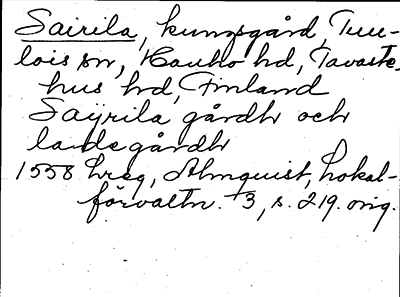 Sairila, kungsgård, Tuu-
lois sn, Hauho hd, Tavaste-
hus hd, Finland
Saÿrila gårdh och
landegårdh
1558 hreg, Almquist, Lokal-
förvaltn. 3, s. 219. orig.